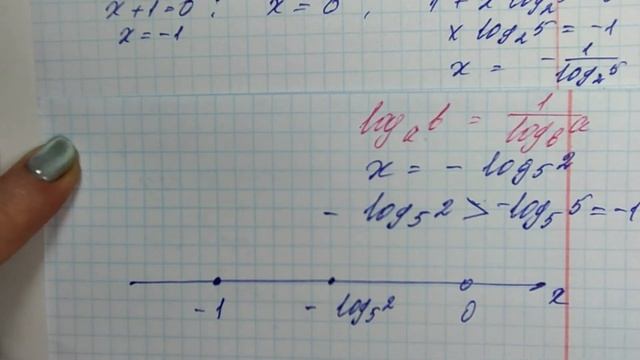 x + 1 = 0 ; x = 0 , 1 + x log₂5
x = -1
x log₂5 = -1
x = - 1/log₂5
logₐb = 1/log_b a
x = - log₅2
- log₅2 > -log₅5 = -1
-1 - log₅2 0 x